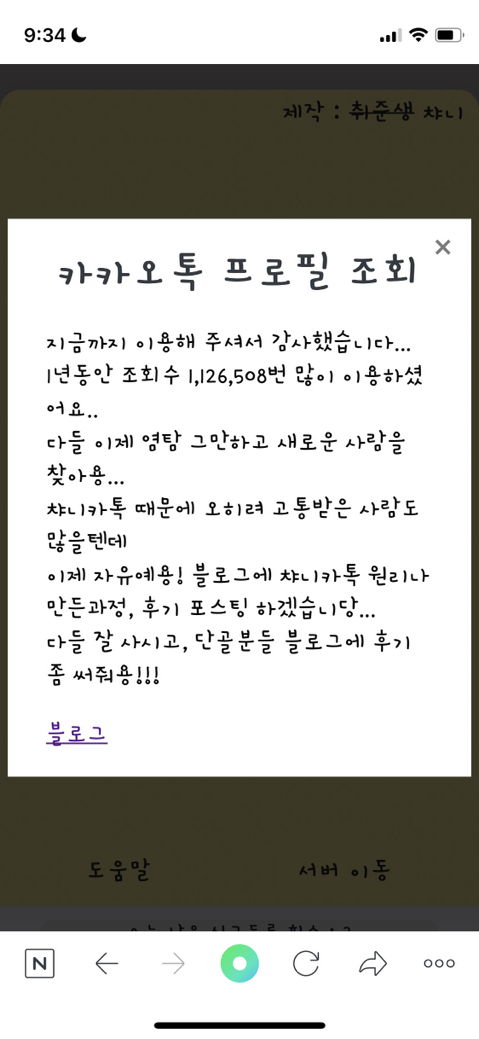 9:34
제작 : 취준생 챠니
카카오톡 프로필 조회
지금까지 이용해 주셔서 감사했습니다...
1년동안 조회수 1,126,508번 많이 이용하셨
어요..
다들 이제 염탐 그만하고 새로운 사람을
찾아용...
챠니카톡 때문에 오히려 고통받은 사람도
많을텐데
이제 자유예용! 블로그에 챠니카톡 원리나
만든과정, 후기 포스팅 하겠습니당...
다들 잘 사시고, 단골분들 블로그에 후기
좀 써줘용!!!
블로그
도움말 서버 이동
N